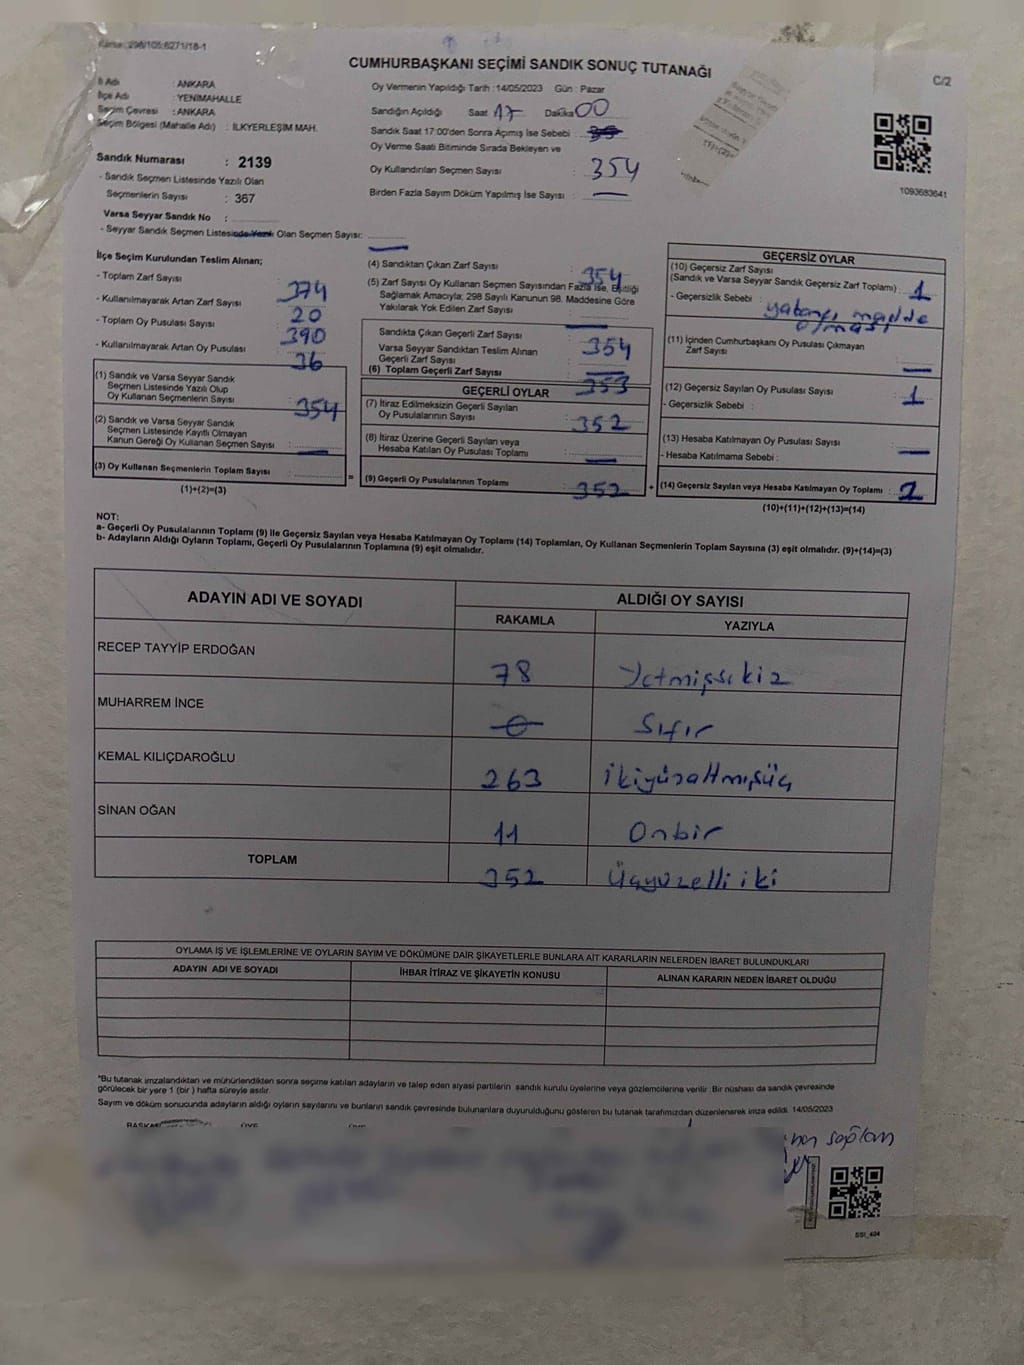 Karar : 298/105:6271/18-1
CUMHURBAŞKANI SEÇİMİ SANDIK SONUÇ TUTANAĞI
C/2
İl Adı : ANKARA
İlçe Adı : YENİMAHALLE
Seçim Çevresi : ANKARA
Seçim Bölgesi (Mahalle Adı) : İLKYERLEŞİM MAH.
Sandık Numarası : 2139
- Sandık Seçmen Listesinde Yazılı Olan
Seçmenlerin Sayısı : 367
Varsa Seyyar Sandık No :
- Seyyar Sandık Seçmen Listesinde Yazılı Olan Seçmen Sayısı:
Oy Vermenin Yapıldığı Tarih : 14/05/2023 Gün : Pazar
Sandığın Açıldığı Saat 17 Dakika 00
Sandık Saat 17:00'den Sonra Açımış İse Sebebi :
Oy Verme Saati Bitiminde Sırada Bekleyen ve
Oy Kullandırılan Seçmen Sayısı : 354
Birden Fazla Sayım Döküm Yapılmış İse Sayısı : —
1093683641
İlçe Seçim Kurulundan Teslim Alınan;
- Toplam Zarf Sayısı : 374
- Kullanılmayarak Artan Zarf Sayısı : 20
- Toplam Oy Pusulası Sayısı : 390
- Kullanılmayarak Artan Oy Pusulası : 36
(1) Sandık ve Varsa Seyyar Sandık
Seçmen Listesinde Yazılı Olup
Oy Kullanan Seçmenlerin Sayısı : 354
(2) Sandık ve Varsa Seyyar Sandık
Seçmen Listesinde Kayıtlı Olmayan
Kanun Gereği Oy Kullanan Seçmen Sayısı : —
(3) Oy Kullanan Seçmenlerin Toplam Sayısı :
(1)+(2)=(3)
=
(4) Sandıktan Çıkan Zarf Sayısı : 354
(5) Zarf Sayısı Oy Kullanan Seçmen Sayısından Fazla İse, Eşitliği
Sağlamak Amacıyla; 298 Sayılı Kanunun 98. Maddesine Göre
Yakılarak Yok Edilen Zarf Sayısı : —
Sandıkta Çıkan Geçerli Zarf Sayısı : 354
Varsa Seyyar Sandıktan Teslim Alınan
Geçerli Zarf Sayısı : —
(6) Toplam Geçerli Zarf Sayısı : 353
GEÇERLİ OYLAR
(7) İtiraz Edilmeksizin Geçerli Sayılan
Oy Pusulalarının Sayısı : 352
(8) İtiraz Üzerine Geçerli Sayılan veya
Hesaba Katılan Oy Pusulası Toplamı : —
(9) Geçerli Oy Pusulalarının Toplamı : 352
+
GEÇERSİZ OYLAR
(10) Geçersiz Zarf Sayısı
(Sandık ve Varsa Seyyar Sandık Geçersiz Zarf Toplamı) : 1
- Geçersizlik Sebebi : yabancı madde
olması
(11) İçinden Cumhurbaşkanı Oy Pusulası Çıkmayan
Zarf Sayısı : —
(12) Geçersiz Sayılan Oy Pusulası Sayısı : 1
- Geçersizlik Sebebi :
(13) Hesaba Katılmayan Oy Pusulası Sayısı : —
- Hesaba Katılmama Sebebi :
(14) Geçersiz Sayılan veya Hesaba Katılmayan Oy Toplamı : 2
(10)+(11)+(12)+(13)=(14)
NOT:
a- Geçerli Oy Pusulalarının Toplamı (9) ile Geçersiz Sayılan veya Hesaba Katılmayan Oy Toplamı (14) Toplamları, Oy Kullanan Seçmenlerin Toplam Sayısına (3) eşit olmalıdır. (9)+(14)=(3)
b- Adayların Aldığı Oyların Toplamı, Geçerli Oy Pusulalarının Toplamına (9) eşit olmalıdır.
ADAYIN ADI VE SOYADI ALDIĞI OY SAYISI
RAKAMLA YAZIYLA
RECEP TAYYİP ERDOĞAN 78 Yetmişsekiz
MUHARREM İNCE 0 Sıfır
KEMAL KILIÇDAROĞLU 263 ikiyüzaltmışüç
SİNAN OĞAN 11 Onbir
TOPLAM 352 Üçyüzelliiki
OYLAMA İŞ VE İŞLEMLERİNE VE OYLARIN SAYIM VE DÖKÜMÜNE DAİR ŞİKAYETLERLE BUNLARA AİT KARARLARIN NELERDEN İBARET BULUNDUKLARI
ADAYIN ADI VE SOYADI İHBAR İTİRAZ VE ŞİKAYETİN KONUSU ALINAN KARARIN NEDEN İBARET OLDUĞU
*Bu tutanak imzalandıktan ve mühürlendikten sonra seçime katılan adayların ve talep eden siyasi partilerin sandık kurulu üyelerine veya gözlemcilerine verilir. Bir nüshası da sandık çevresinde
görülecek bir yere 1 (bir ) hafta süreyle asılır.
Sayım ve döküm sonucunda adayların aldığı oyların sayılarını ve bunların sandık çevresinde bulunanlara duyurulduğunu gösteren bu tutanak tarafımızdan düzenlenerek imza edildi. 14/05/2023
BAŞKAN ÜYE ÜYE
sağlam
SSI_404